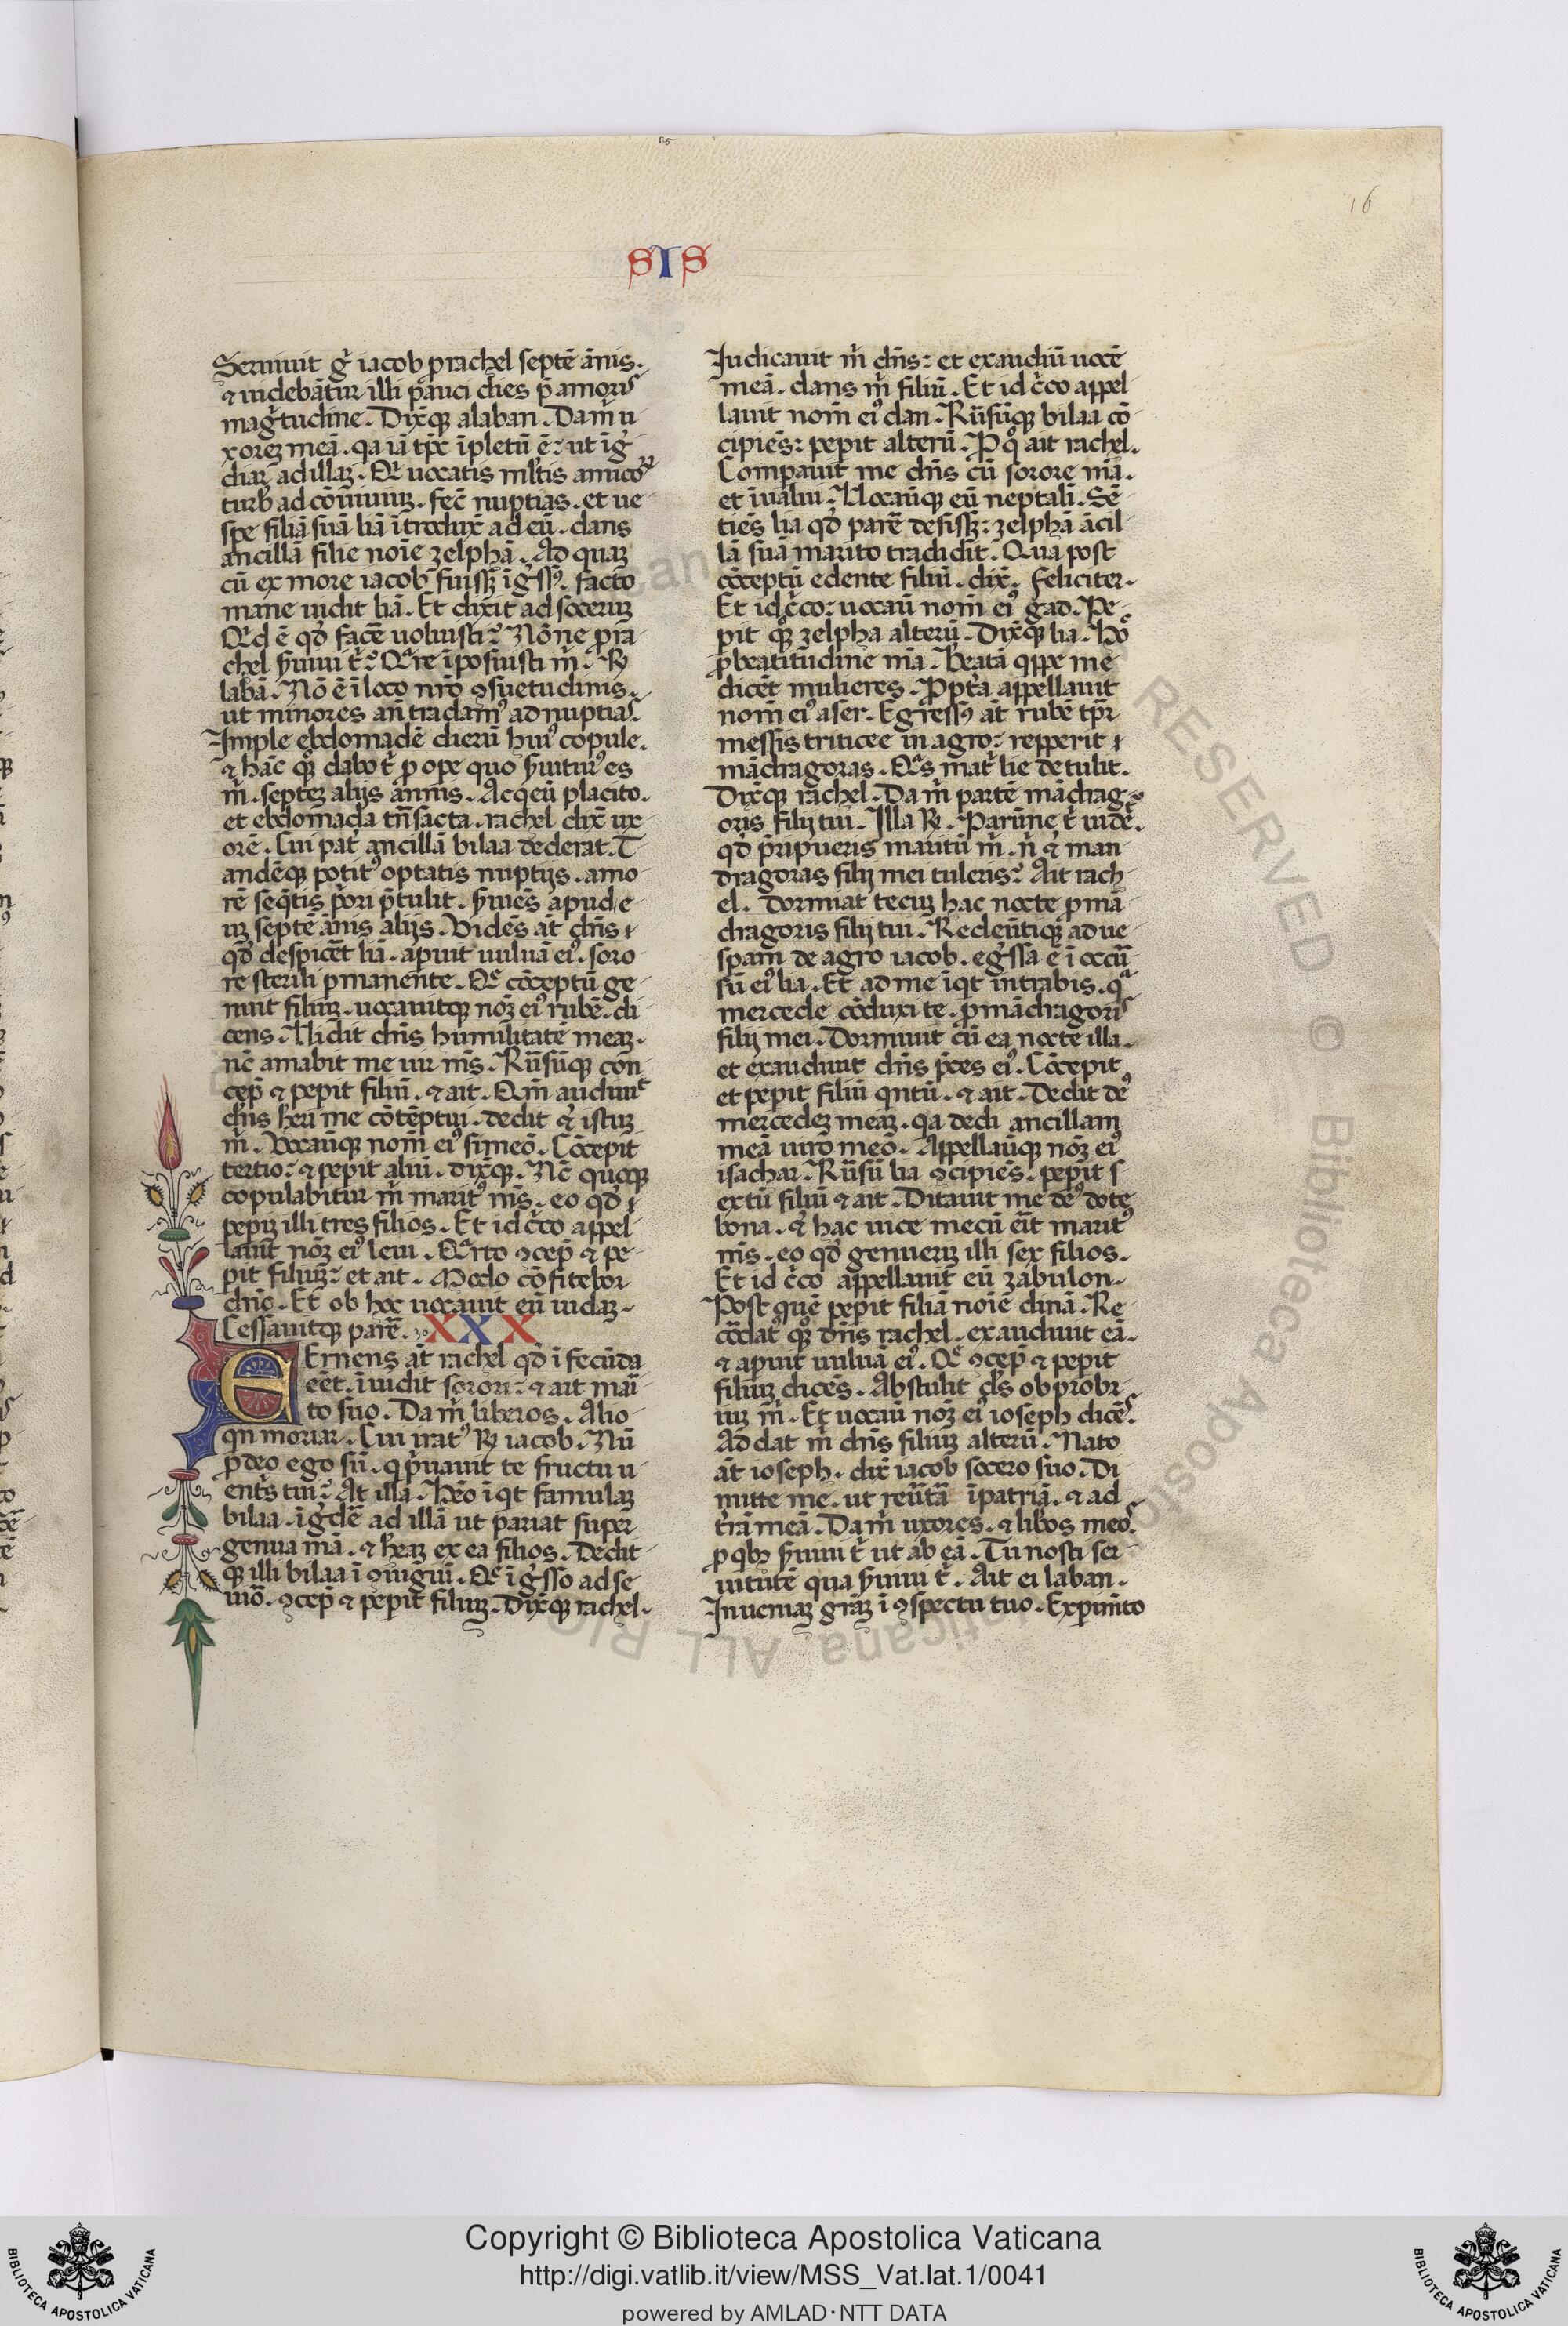 16
SIS
Seruiuit g̛ iacob p rachel septē ānis.
⁊ uidebāt̄ur illi pauci dies p̄ amoris
mag̛tudine. Dix̄q; alaban. Da m̄ u
xorez meā. qa iā tp̄s īpletū ē: ut īg̛
diar ad illaz. Qͥ uocatis ml̄tis amicoꝝ
turb̄ ad cōuiuiuz. fec̄ nuptias. et ue
spe filiā suā liā ītrodux̄ ad eū. dans
ancillā filie noīe zelphā. Ad quaz
cū ex more iacob fuissz īg̛ss9. facto
mane uidit liā. Et dixit ad soceruz
Qͥd ē qd̛ facē uoluisti? Nōne p ra
chel s̄uiui t̛? Qͣre īposuisti m̛? R̛
labā. Nō ē ī loco nr̄o ꝯsuetudinis.
ut minores an̄ tradam9 ad nuptias.
Imple ebdomadē dierū hui9 copule.
⁊ hāc qͦ; dabo t̛ p ope quo s̄uitur9 es
m̛. septez alijs annis. Acq̛eū placito.
et ebdomada tn̄sacta. rachel dix̄ ux
orē. Cui pat̛ ancillā bilaa dederat. T
andēq; potit9 optatis nuptijs. amo
rē seq̄tis p̛ori p̄tulit. s̄uiēs apud e
uz septē ānis alijs. Vidēs āt dn̄s
qd̛ despicēt liā. apuit uuluā ei9. soro
re sterili pmanente. Qͤ cōceptū ge
nuit filiuz. uocauitq; noz̄ ei9 rubē. di
cens. Uidit dn̄s humilitatē meaz.
nc̄ amabit me uir m̄s. Rūsūq; con
cep̄ ⁊ pepit filiū. ⁊ ait. Qm̄ audiuit
dn̄s h̄eri me cōtēptui. dedit ⁊ istuz
m̛. Vocaūq; nom̄ ei9 simeō. Cōcepit
tertio: ⁊ pepit aliū. dix̄q;. Nc̄ quoq;
copulabitur m̛ marit9 m̄s. eo qd̛
pepiz illi tres filios. Et id c̛co appel
lauit noz̄ ei9 leui. Qͣrto ꝯcep̄ ⁊ pe
pit filiuz: et ait. Modo cōfitebor
dn̄o. Et ob hoc uocauit eū iudaz.
Cessauitq; parē. 30 XXX
Ernens āt rachel qd̛ īfecūda
eēt. īuidit sorori: ⁊ ait maī
to suo. Da m̛ liberos. Alio
qn moriar. Cui irat9 R̛ iacob. Nū
p deo ego sū. q p̛uauit te fructu u
ent̛s tui? At illa. Hēo īqt famulaz
bilaa. īg̛dē ad illā ut pariat super
genua mā. ⁊ h̄eaz ex ea filios. Dedit
q; illi bilaa ī ꝯiugiū. Qͤ īg̛sso ad se
uiō. ꝯcep̄ ⁊ pepit filiuz. Dix̄q; rachel.
Iudicauit m̛ dn̄s: et exaudiū uocē
meā. dans m̛ filiū. Et id c̛co appel
lauit nom̄ ei9 dan. Rūsūq; bilaa cō
cipiēs: pepit alterū. P qͦ ait rachel.
Compauit me dn̄s cū sorore mā.
et īualui. Uocaūq; eū neptali. Sē
tiēs lia qd̛ parē desissz: zelphā ācil
lā suā marito tradidit. Qua post
cōceptū edente filiū. dix̄. feliciter.
Et id c̛co: uocaū nom̄ ei9 gad. Pe
pit qͦ; zelpha alterū. Dix̄q; lia. Hō
p beatitudine mā. Beatā qppe me
dicēt mulieres. Ppt̛a appellauit
nom̄ ei9 aser. Egress9 āt rubē tp̄r
messis triticee in agro: repperit
mādragoras. Qͣs mat̛ lie detulit.
Dix̄q; rachel. Da m̛ partē mādrag
oris filij tui. Illa R̛. Parūne t̛ uidē.
qd̛ p̛ripueris maritū m̛. n̛ ⁊ man
dragoras filij mei tuleris? Ait rach
el. dormiat tecuz hac nocte p mā
dragoris filij tui. Redeūtiq; ad ue
spam̄ de agro iacob. eg̛ssa ē ī occū
sū ei9 lia. Et ad me īqt intrabis. qͣ
mercede cōduxi te. p mādragoris
filij mei. Dormiuit cū ea nocte illa.
et exaudiuit dn̄s p̛ces ei9. Cōcepit
et pepit filiū qntū. ⁊ ait. Dedit de9
mercedez meaz. qa dedi ancillam
meā uiro meō. Appellaūq; noz̄ ei9
isachar. Rūsū lia ꝯcipiēs. pepit s
extū filiū ⁊ ait. Ditauit me de9 dote
bona. ⁊ hac uice mecū eīt marit9
m̄s. eo qd̛ genueriz illi sex filios.
Et id c̛co appellauit eū zabulon.
Post quē pepit filiā noīe dinā. Re
cōdat9 qͦ; dn̄s rachel. exaudiuit eā.
⁊ apuit uuluā ei9. Qͤ ꝯcep̄ ⁊ pepit
filiuz dicēs. Abstulit d̄s obprobr
iuz m̄. Et uocaū noz̄ ei9 ioseph dicēs.
Addat m̛ dn̄s filiuz alterū. Nato
āt ioseph. dix̄ iacob socero suo. Di
mitte me. ut reūtā īpatriā. ⁊ ad
t̛rā meā. Da m̛ uxores. ⁊ lib̄os meos.
p qb; s̄uiui t̛ ut abeā. Tu nosti ser
uitutē qua s̄uiui t̛. Ait ei laban.
Inueniaz grāz ī ꝯspectu tuo. Expimēto
Copyright © Biblioteca Apostolica Vaticana
http://digi.vatlib.it/view/MSS_Vat.lat.1/0041
powered by AMLAD·NTT DATA
BIBLIOTECA APOSTOLICA VATICANA
BIBLIOTECA APOSTOLICA VATICANA